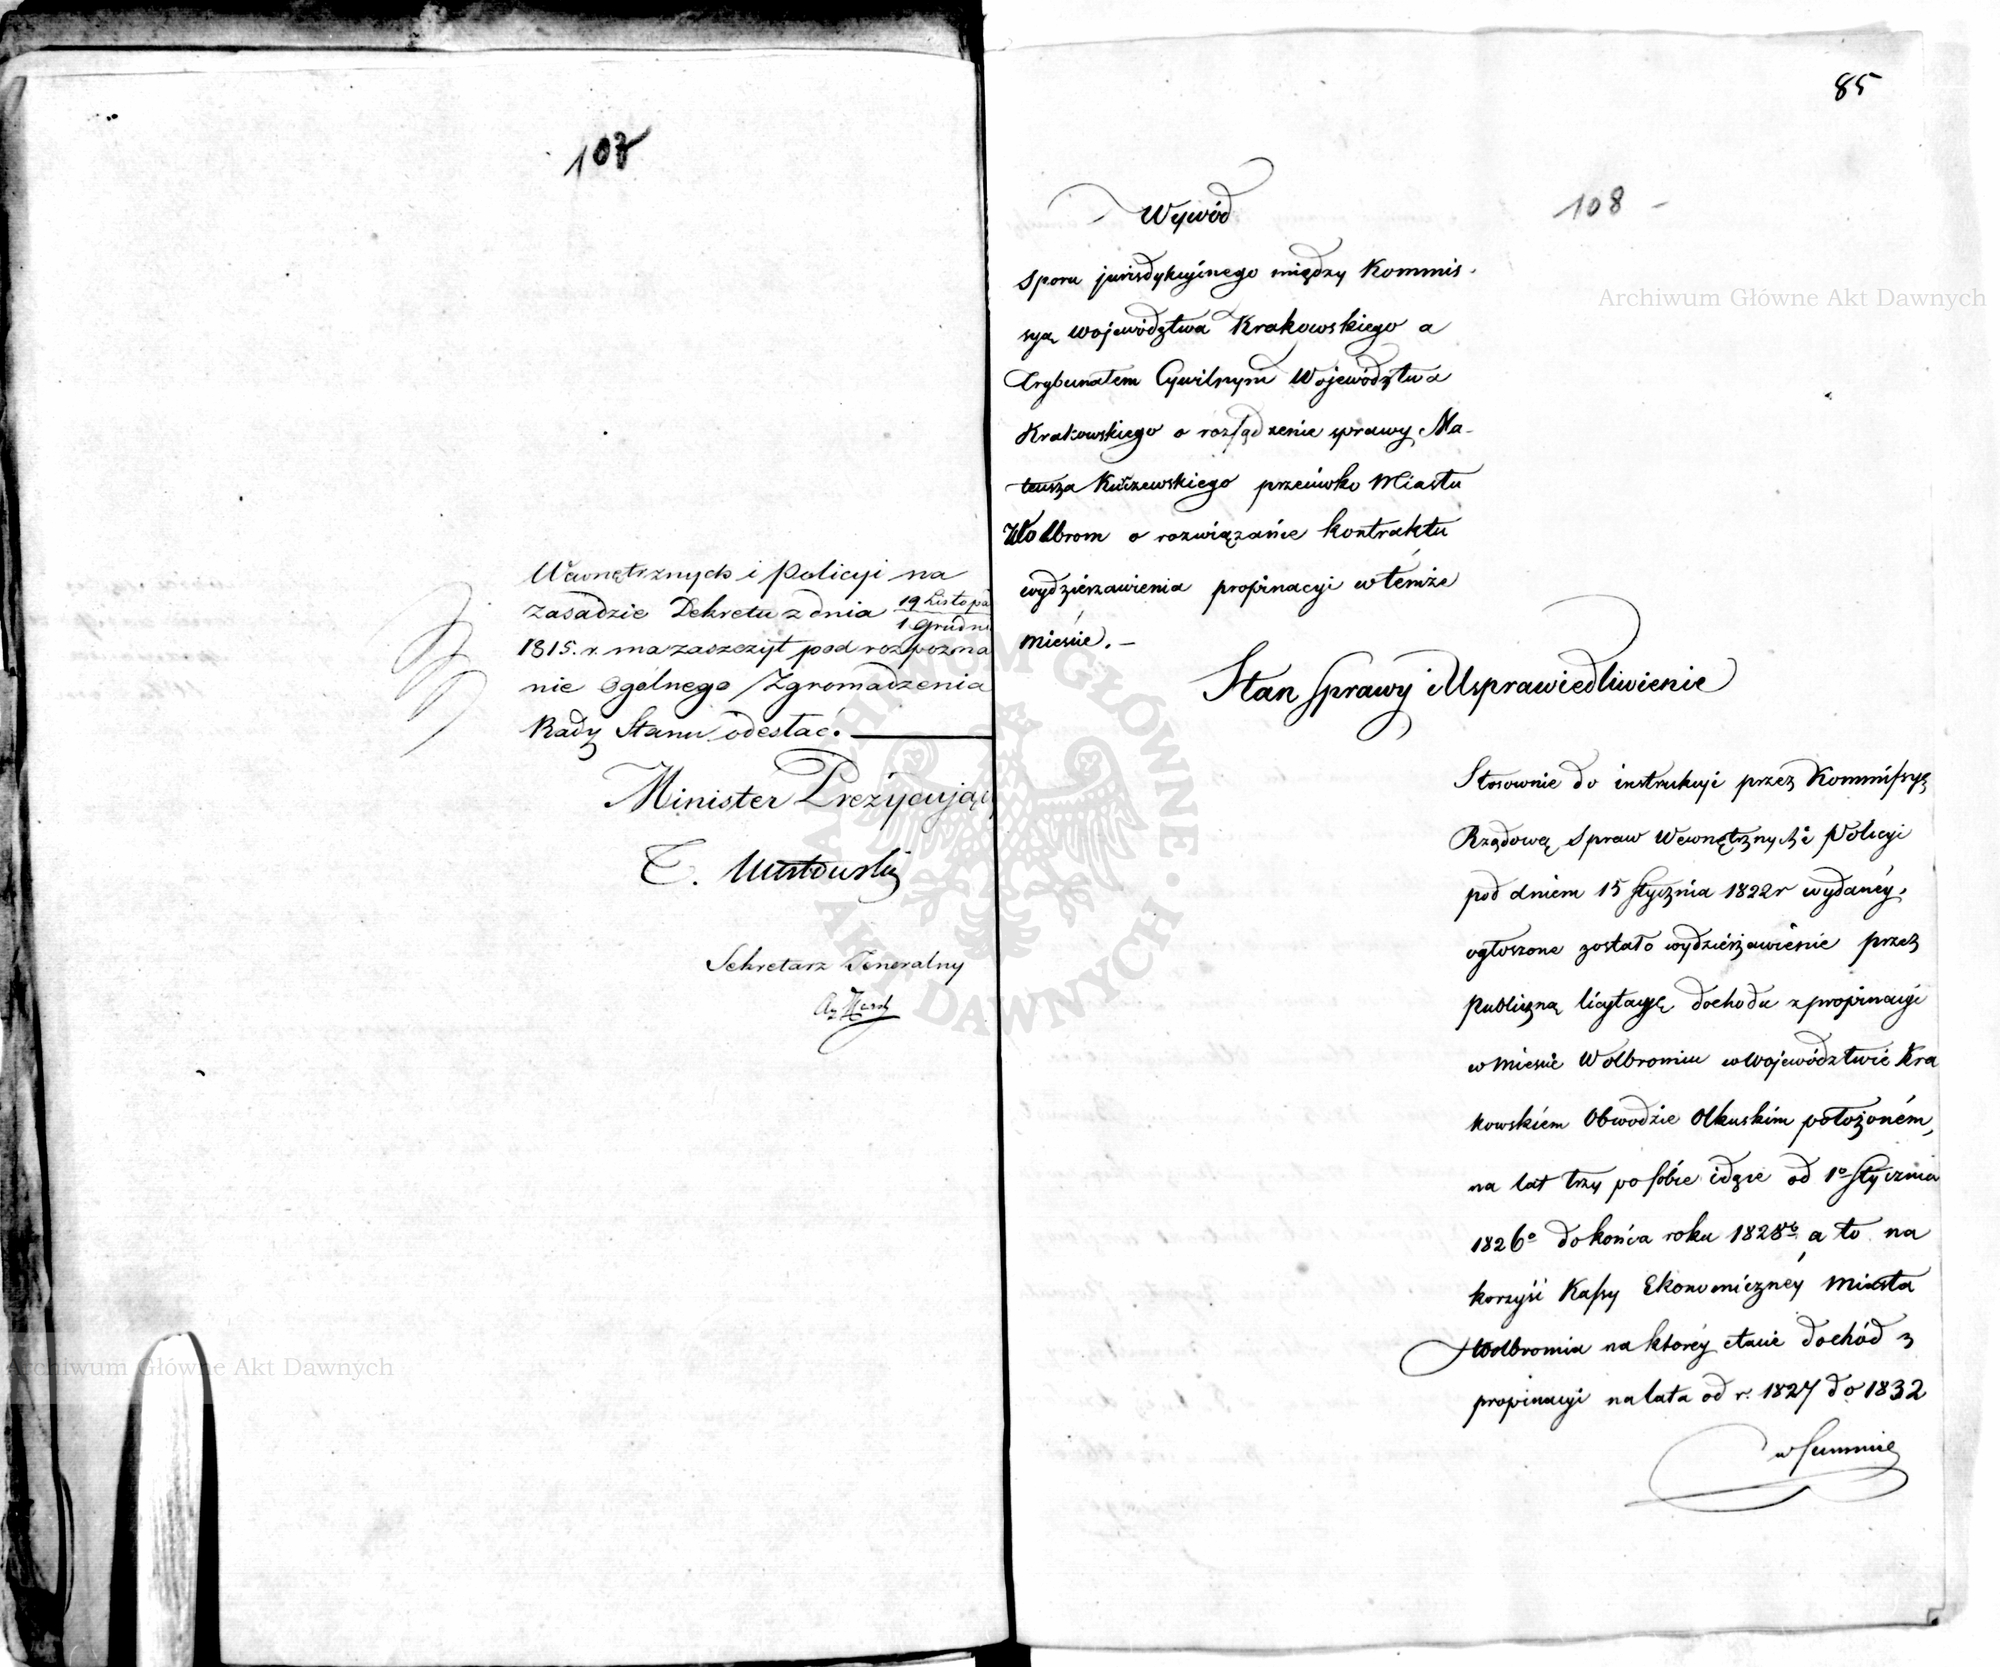 107
Wewnętrznych i Policyi na
zasadzie Dekretu z dnia 19 Listopa
1 Grudni
1815. r. ma zaszczyt pod rozpozna
nie Ogólnego Zgromadzenia
Rady Stanu odesłać.
Minister Prezyduiący
T. Mostowski
Sekretarz Jeneralny
85
108 -
Wywód
Sporu jurisdykcyinego między Kommis-
syą Województwa Krakowskiego a
Trybunałem Cywilnym Województwa
Krakowskiego o rozsądzenie sprawy Ma-
teusza Kulczewskiego przeciwko Miastu
Wolbrom o rozwiązanie kontraktu
wydzierzawienia propinacyi w témże
mieście. –
Stan Sprawy i Usprawiedliwienie
Stosownie do instrukcyi przez Kommissyą
Rządową Spraw Wewnętrznych i Policyi
pod dniem 15 Stycznia 1822 r wydanéy,
ogłoszone zostało wydzierżawienie przez
publiczną licytacyę dochodu z propinacyi
w mieście Wolbromiu w Województwie Kra
kowskiém Obwodzie Olkuskim położoném,
na lat trzy po sobie idące od 1º Stycznia
1826º do końca roku 1828 a to na
korzyść Kassy Ekonomicznéy Miasta
Wolbromia na któréy etacie dochód z
propinacyi na lata od r. 1827 do 1832
w summie
Archiwum Główne Akt Dawnych
Archiwum Główne Akt Dawnych
ARCHIWUM GŁÓWNE AKT DAWNYCH